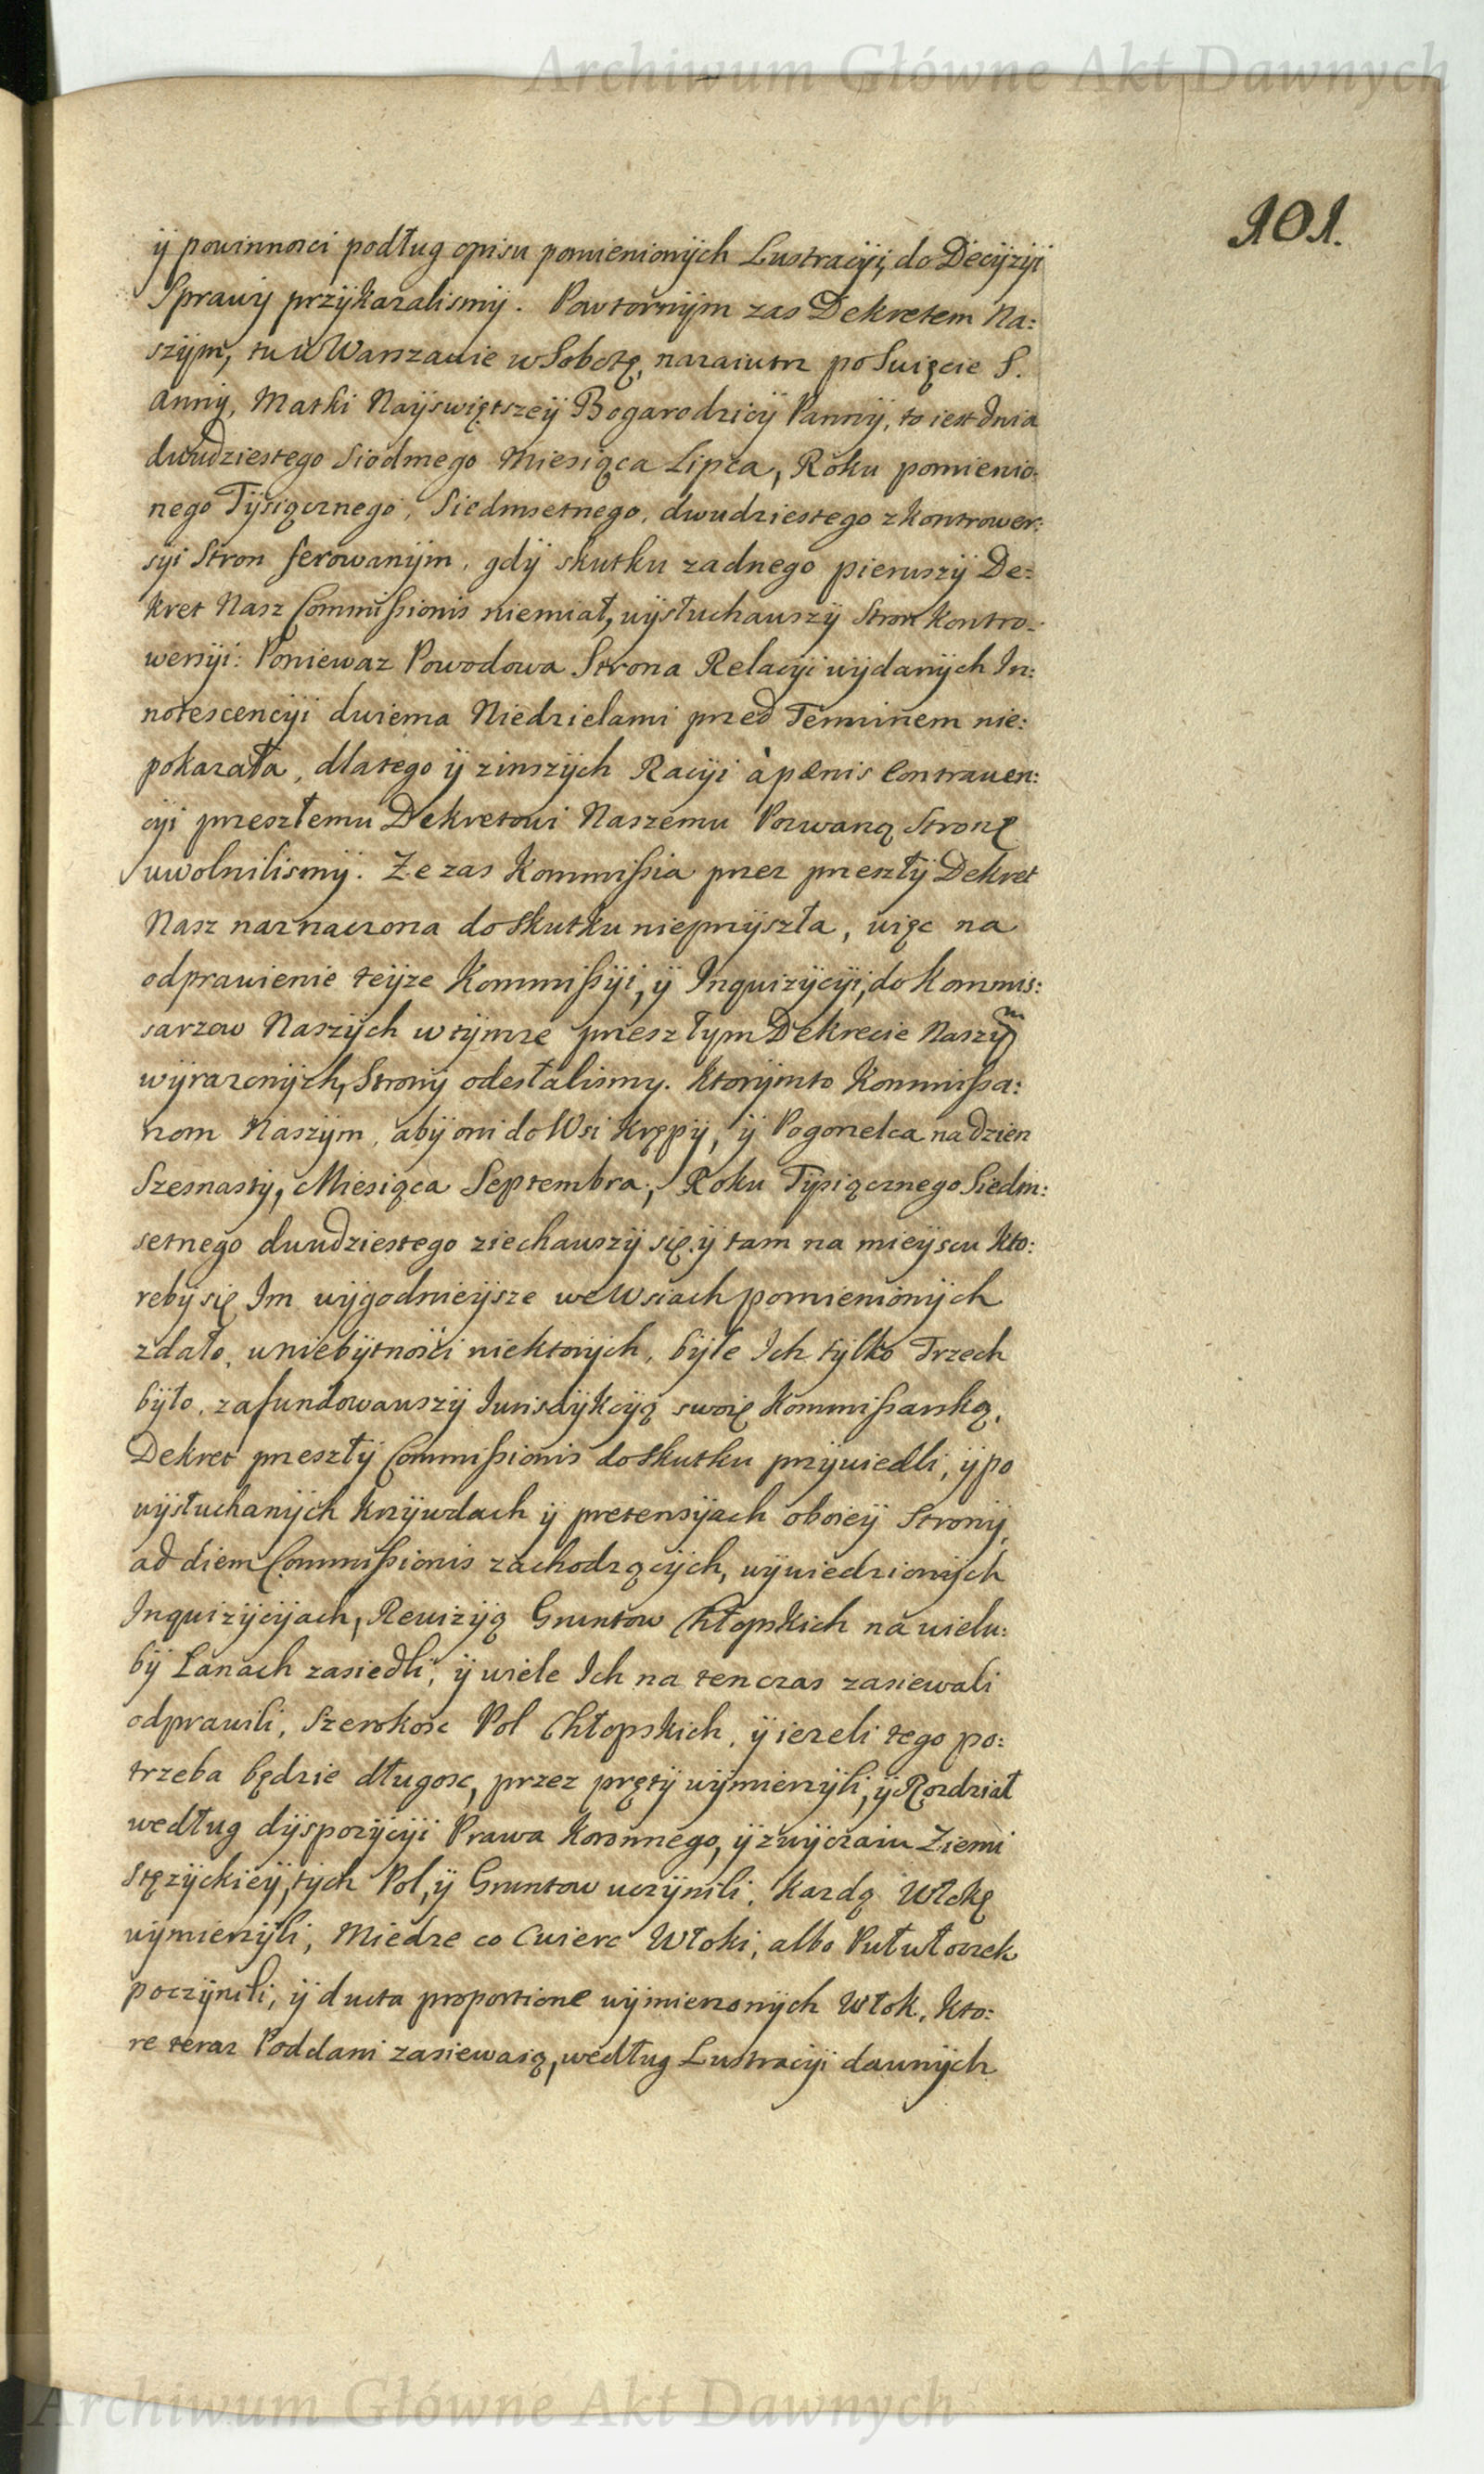 Archiwum Główne Akt Dawnych
101.
ÿ powinnosci podług opisu pomienionÿch Lustracÿi, do Decÿzÿi
Sprawÿ przÿkazalismÿ. Powtornÿm zas Dekretem Na:
szÿm, tu w Warszawie w Sobotę, nazaiutrz po Swięcie S.
Annÿ, Matki Naÿswiętszeÿ Bogarodzicÿ Pannÿ, to iest dnia
dwudziestego Siodmego Miesiąca Lipca, Roku pomienio:
nego Tÿsiącznego, Siedmsetnego, dwudziestego z kontrower:
sÿi Stron ferowanÿm, gdÿ skutku zadnego pierwszÿ De:
kret Nasz Commissionis niemiał, wÿsłuchawszÿ Stron kontro:
wersÿi: Poniewaz Powodowa Strona Relacÿi wÿdanÿch In:
notescencÿi dwiema Niedzielami przed Terminem nie:
pokazała, dlatego ÿ zinszÿch Racÿi à pœnis Contrawen:
cÿi przeszłemu Dekretowi Naszemu Pozwaną Stronę
uwolnilismÿ. Ze zas Kommissia przez przeszłÿ Dekret
Nasz naznaczona do skutku nieprzÿszła, więc na
odprawienie teÿze Kommissÿi, ÿ Inquizÿcÿi, do Kommis:
sarzow Naszÿch w tÿmze przeszłym Dekrecie Naszÿm
wÿrazonÿch, Stronÿ odesłalismy. Ktorÿmto Kommissa:
rzom Naszÿm, abÿ oni do Wsi Krępÿ, ÿ Pogonelca na dzien
Szesnastÿ, Miesiąca Septembra, Roku Tÿsiącznego Siedm:
setnego dwudziestego ziechawszÿ się ÿ tam na mieÿscu kto:
rebÿ się Im wÿgodnieÿsze we Wsiach pomienionÿch
zdało, w niebÿtnosci niektorÿch, bÿle Ich tÿlko Trzech
bÿło, zafundowawszÿ Jurisdÿkcÿą swoię Kommissarską,
Dekret przeszłÿ Commissionis do skutku przÿwiedli, ÿ po
wÿsłuchanÿch krzÿwdach ÿ pretensÿach oboieÿ Stronÿ,
ad diem Commissionis zachodzącÿch, wÿwiedzionÿch
Inquizÿcÿach, Rewizÿą Gruntow Chłopskich na wielu:
bÿ Łanach zasiedli, ÿ wiele Ich na ten czas zasiewali
odprawili, Szerokosc Pol Chłopskich, ÿ iezeli tego po:
trzeba będzie długosc, przez prętÿ wÿmierzÿli, ÿ Rozdział
według dÿspozÿcÿi Prawa Koronnego, ÿ zwÿczaiu Ziemi
Stęzÿckieÿ, tÿch Pol, ÿ Gruntow uczÿnili, kazdą Włokę
wÿmierzÿli, Miedze co Cwierc Włoki, albo Pułułoczek
poczÿnili, ÿ ducta proportione wÿmierzonÿch Włok, kto:
re teraz Poddani zasiewaią, według Lustracÿi dawnÿch
Archiwum Główne Akt Dawnych